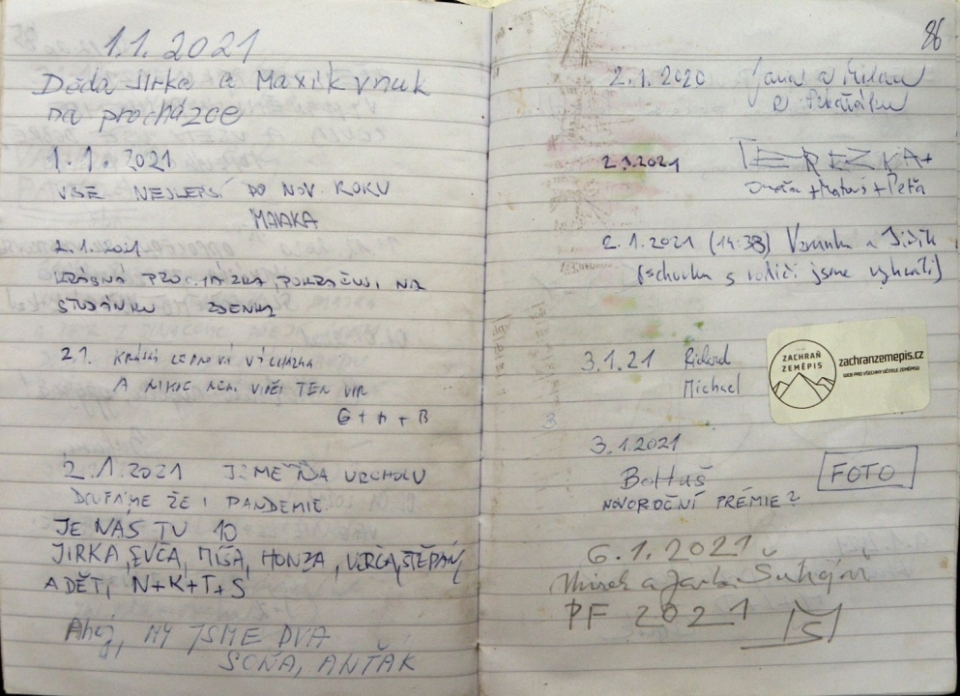 1.1.2021
Děda Jirka a Maxík vnuk
na procházce
1.1.2021
VŠE NEJLEPŠÍ DO NOV. ROKU
MAJAKA
2.1.2021
KRÁSNÁ PROCHÁZKA, POKRAČUJI NA
STUDÁNKU ZDENKY
2.1. KRÁSNÁ LEDNOVÁ VYCHÁZKA
A NIKDE NENÍ VIDĚT TEN VIR
G + A + B
2.1.2021 JSME NA VRCHOLU
DOUFÁME ŽE I PANDEMIE.
JE NÁS TU 10
JIRKA, EVČA, MÍŠA, HONZA, VERČA, ŠTĚPÁN,
A DĚTI, N+K+T+S
Ahoj, MY JSME DVA
SOŇA, ANŤÁK
86
2.1.2020 Jana a Milan
a
2.1.2021 TEREZKA+
+Matouš+Péťa
2.1.2021 (14:38) a Jiřík
(schovku s rodiči jsme vyhráli)
3.1.21 Richard
Michael
ZACHRAŇ
ZEMĚPIS
zachranzemepis.cz
WEB PRO VŠECHNY UČITELE ZEMĚPISU
3.1.2021
Boltuš
NOVOROČNÍ PRÉMIE?
FOTO
6.1.2021
Mirek a Jarka
PF 2021